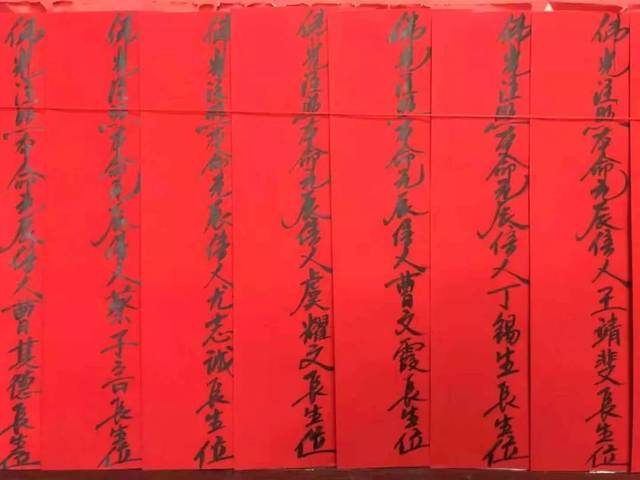 佛光注照本命元辰信人王靖斐長生位
佛光注照本命元辰信人丁錫生長生位
佛光注照本命元辰信人曹文霞長生位
佛光注照本命元辰信人虞耀文長生位
佛光注照本命元辰信人尤志誠長生位
佛光注照本命元辰信人蔡子音長生位
佛光注照本命元辰信人曹其德長生位